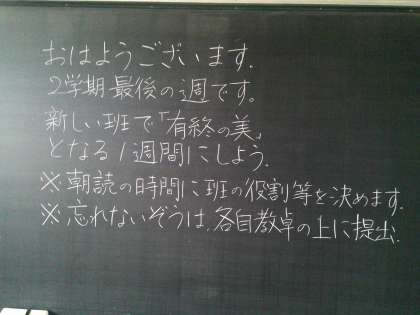 おはようございます.
2学期最後の週です。
新しい班で「有終の美」
となる1週間にしよう.
※朝読の時間に班の役割等を決めます.
※忘れないぞうは.各自教卓の上に提出.